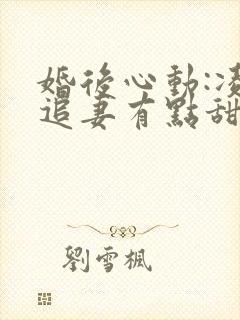 婚後心動:凌
追妻有點甜
劉雪楓